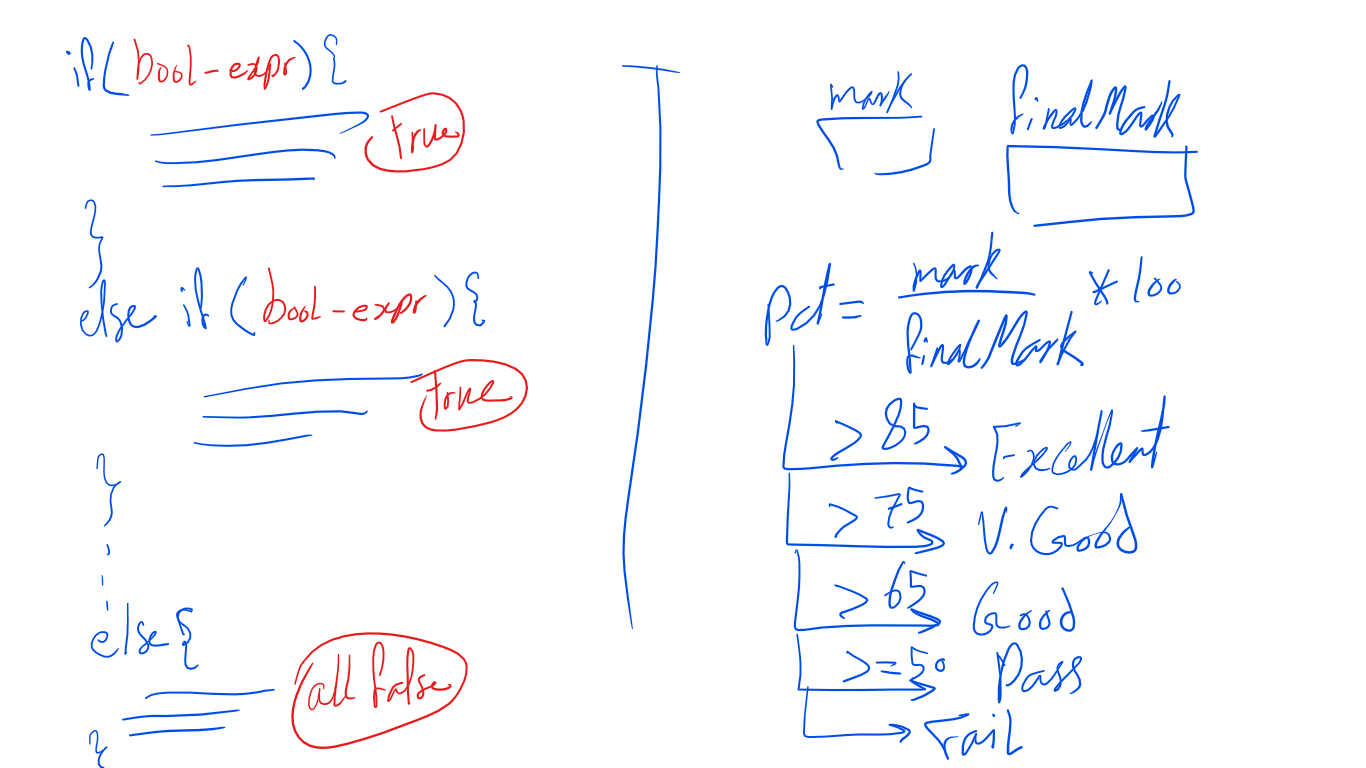 if( bool-expr ) {
true
}
else if ( bool-expr ) {
true
}
else {
all false
}
mark
finalMark
pct = mark / finalMark * 100
> 85 Excellent
> 75 V. Good
> 65 Good
>= 50 Pass
Fail